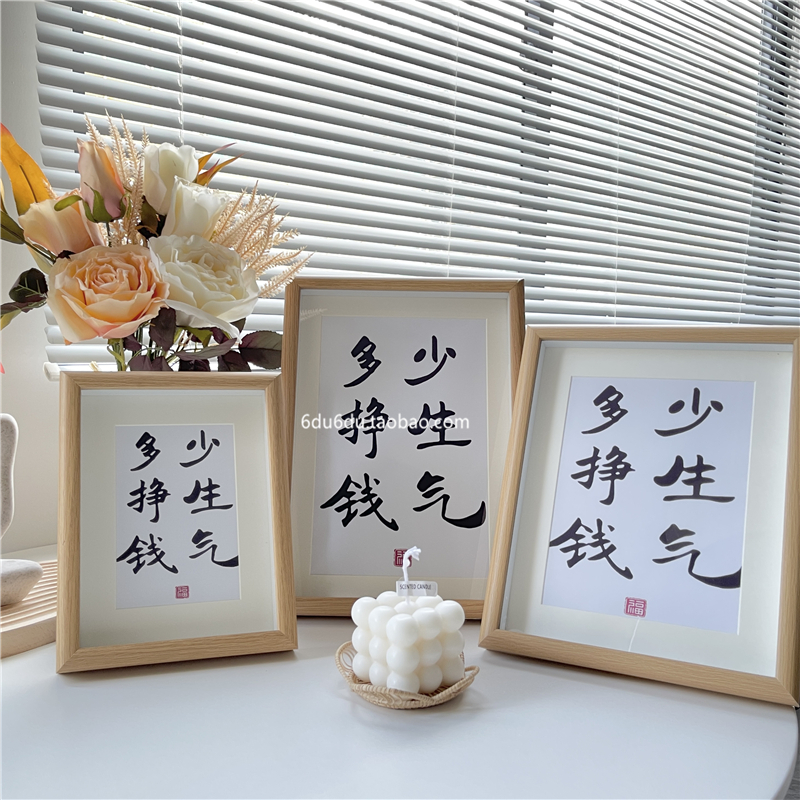 少生气
多挣钱
福
少生气
多挣钱
福
少生气
多挣钱
福
6du6du.taobao.com
SCENTED CANDLE